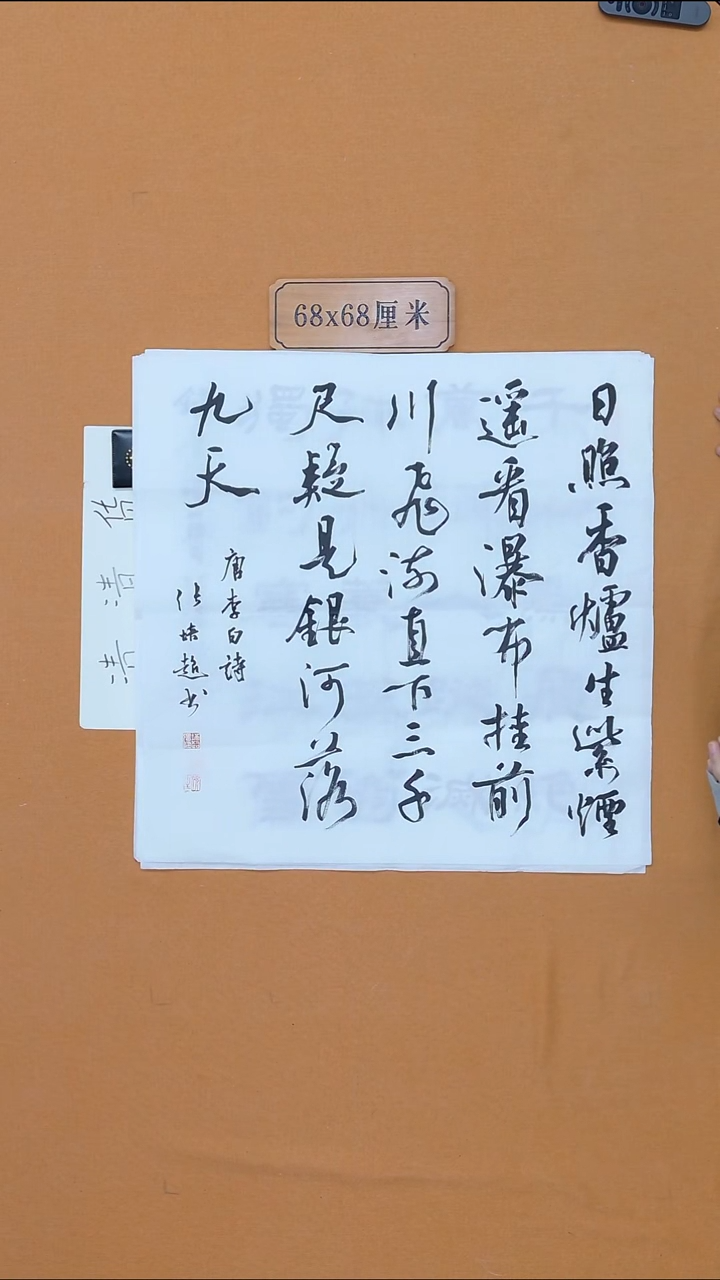 68x68厘米
日照香爐生紫煙
遥看瀑布挂前
川飛流直下三千
尺疑是銀河落
九天
唐李白詩
张培超书
清清